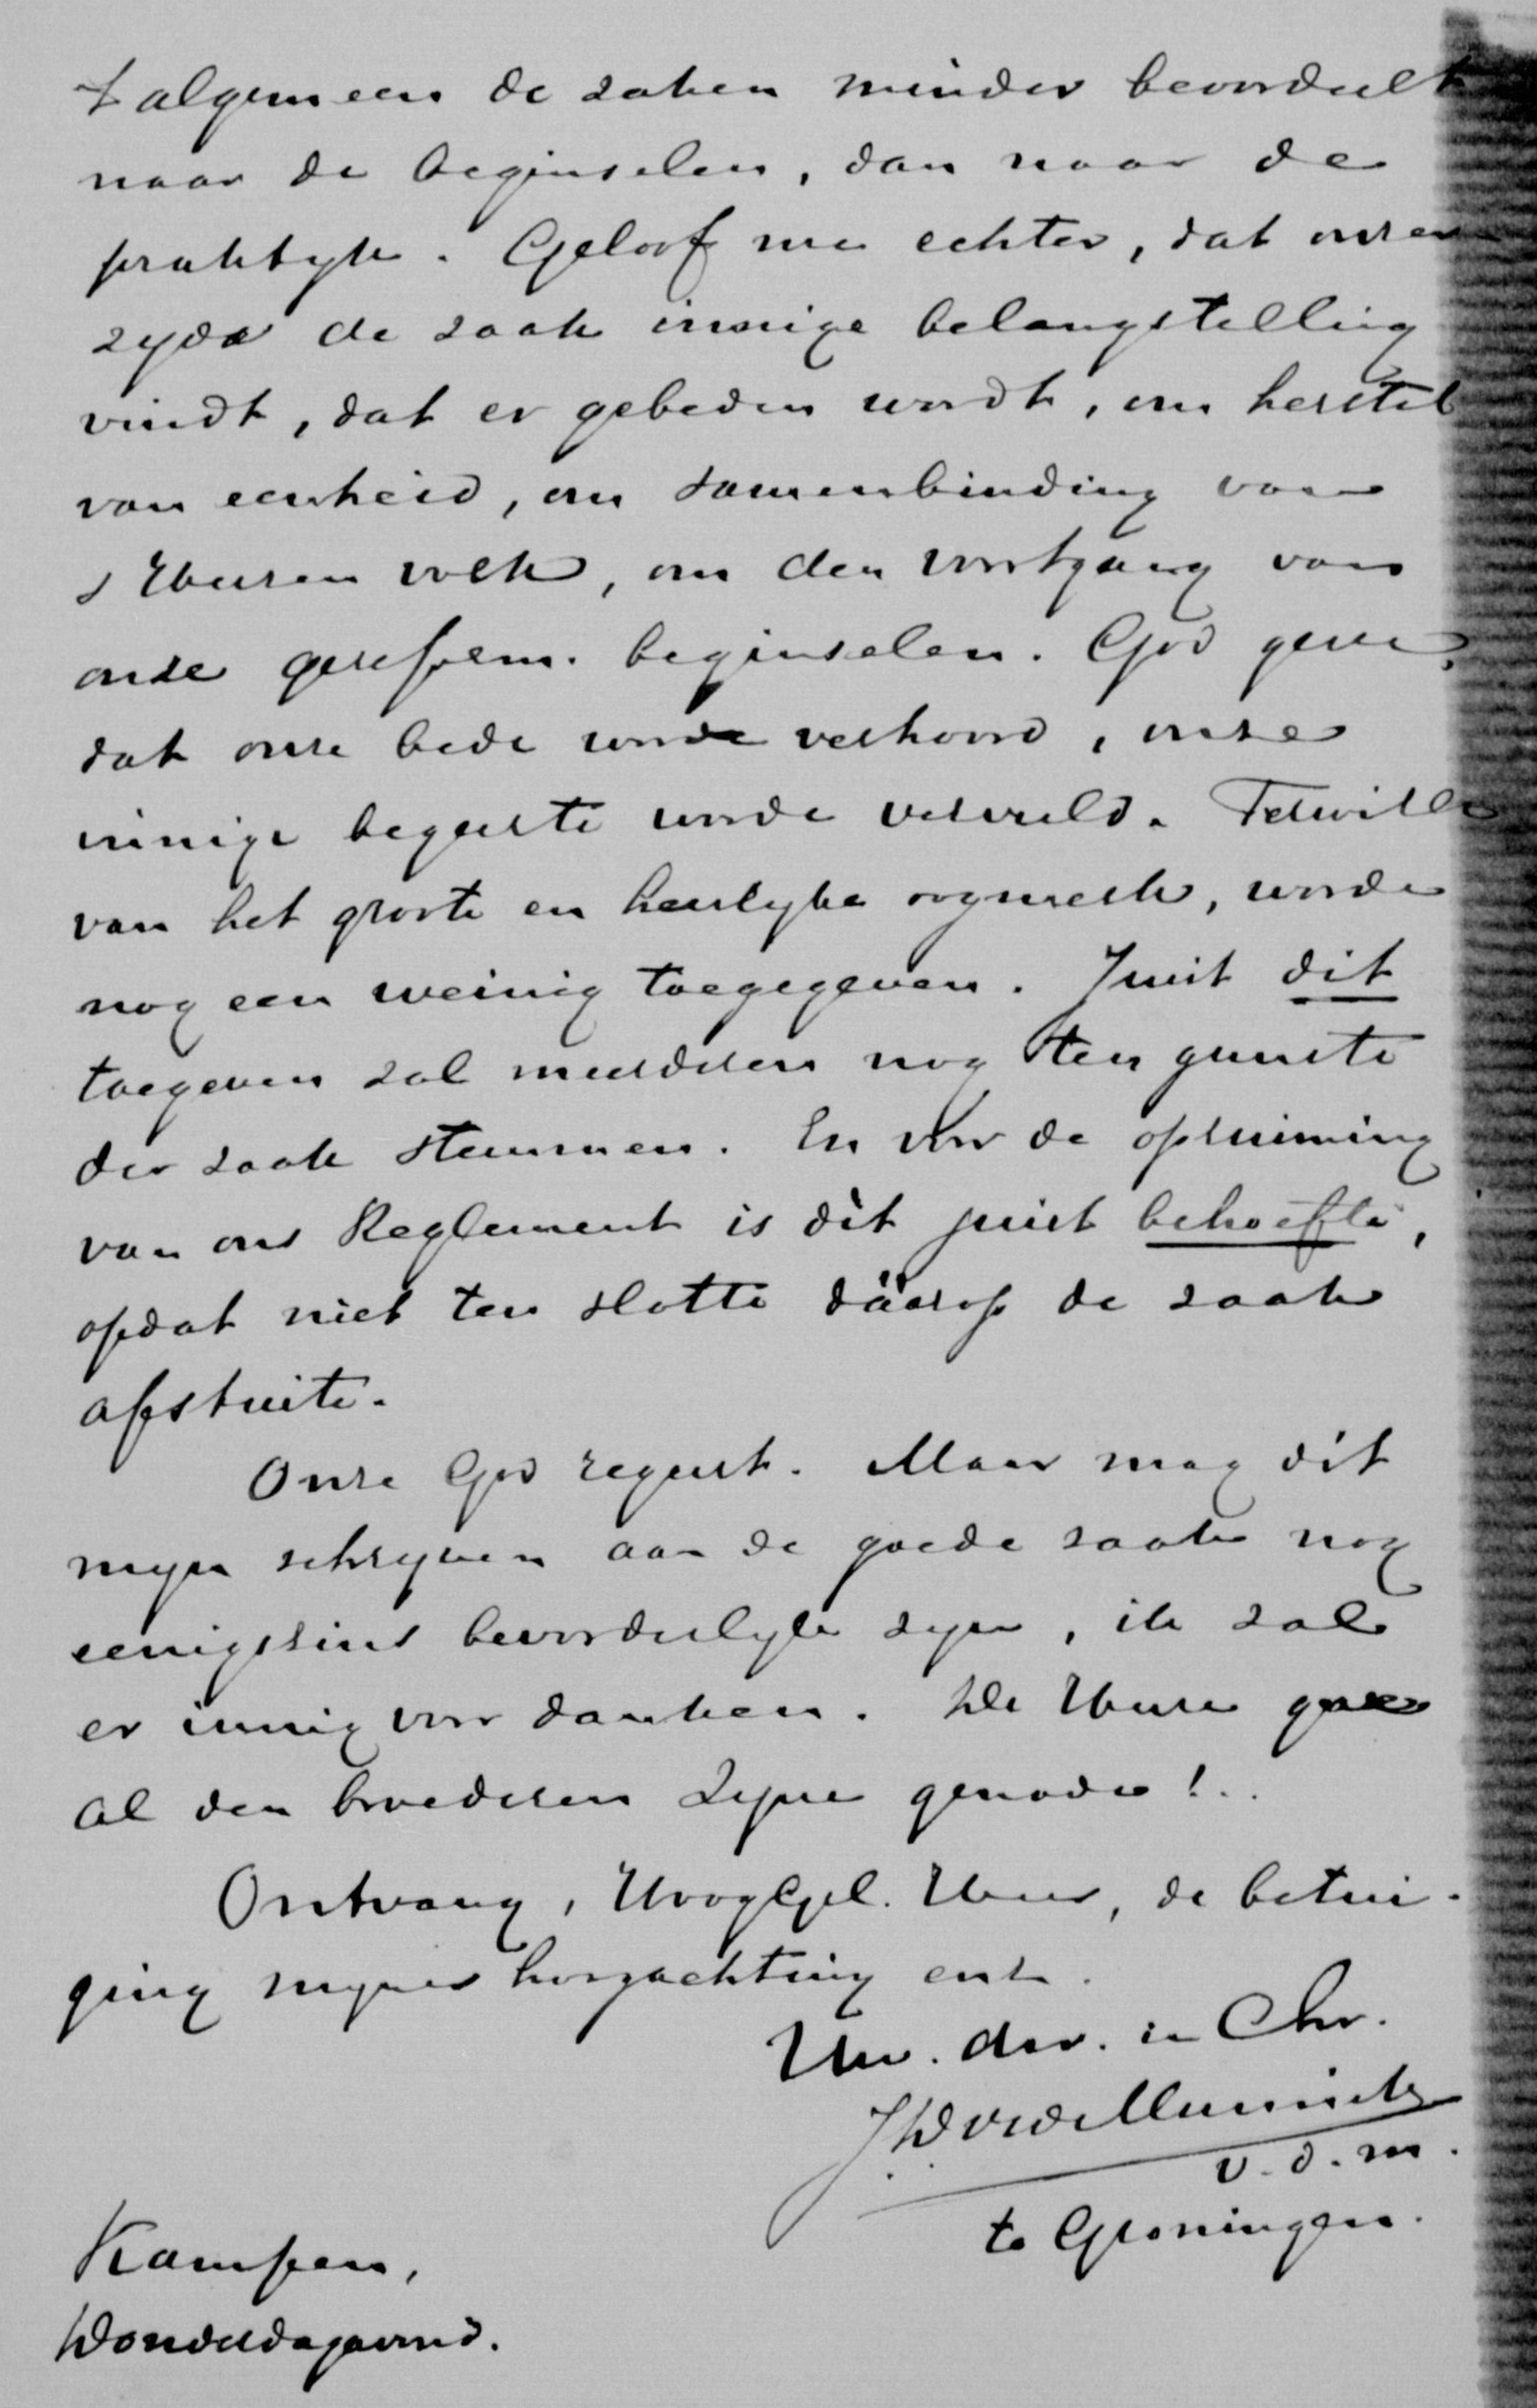 't algemeen de zaken minder beoordeelt
naar de beginselen, dan naar de
praktyk. Geloof me echter, dat onzer
zyds de zaak innige belangstelling
vindt, dat er gebeden wordt, om herstel
van eenheid, om samenbinding van
s Heeren volk, om den voortgang van
onze gereform. beginselen. God geve,
dat onze bede worde verhoord, onze
innige begeerte worde vervuld. Terwille
van het groote en heerlyke oogmerk, worde
nog een weinig toegegeven. Juist dit
toegeven zal meerderen nog ten gunste
der zaak stemmen. En voor de opruiming
van ons Reglement is dit juist behoefte,
opdat niet ten slotte dáárop de zaak
afstuite.
Onze God regeert. Maar mag dit
myn schryven aan de goede zaak nog
eenigszins bevorderlyk zyn, ik zal
er innig voor danken. De Heere geve
al den broederen Zyne genade!..
Ontvang, HoogGel. Heer, de betui-
ging myner hoogachting enz.
Uw. dnr. in Chr.
v. d. m.
te Groningen.
Kampen,
Donderdagavond.